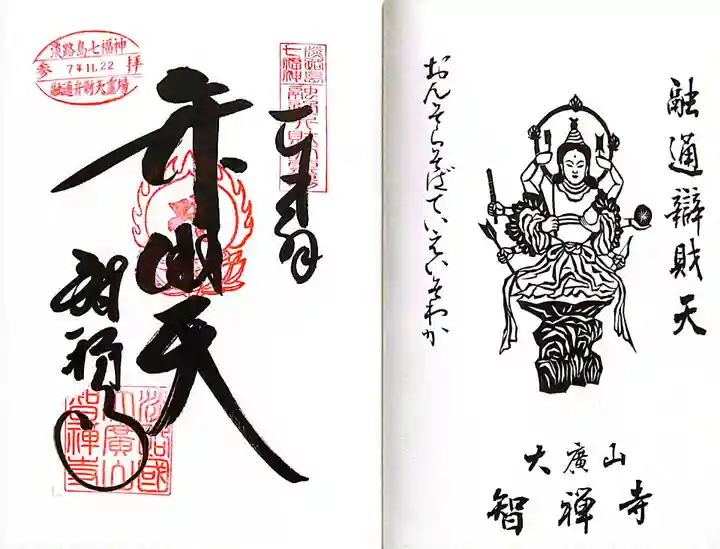 融通辯財天
おんそらそばていえいそわか
大廣山
智禅寺
奉拝
弁財天
智禅寺
淡路島七福神
参拝
7.11.22
融通弁財天霊場
淡路島
七福神
融通弁財天霊場
淡路國
大廣山
智禅寺